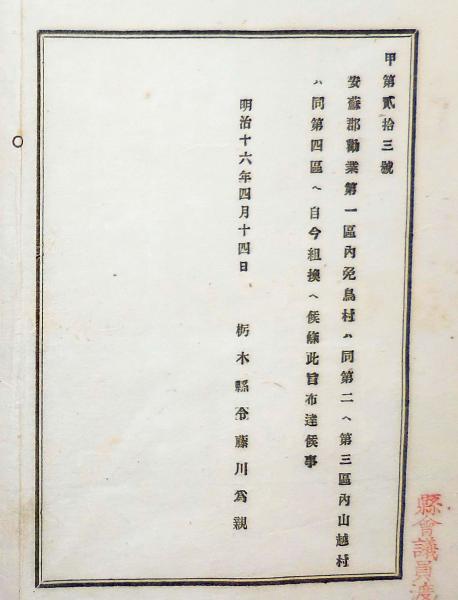 甲第貳拾三號
安蘇郡勸業第一區內免鳥村ハ同第二ヘ第三區內山越村
ハ同第四區ヘ自今組換ヘ候條此旨布達候事
明治十六年四月十四日 栃木縣令藤川為親
縣會議員渡